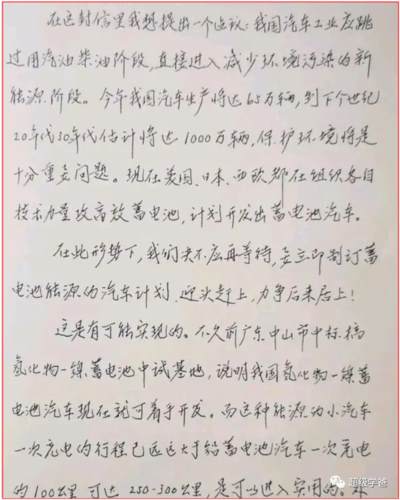 在这封信里我想提出一个建议：我国汽车工业应跳
过用汽油柴油阶段，直接进入减少环境污染的新
能源阶段。今年我国汽车生产将达65万辆，到下个世纪
20年代30年代估计将达1000万辆，保护环境将是
十分重要问题。现在美国、日本、西欧都在组织各自
技术力量攻高效蓄电池，计划开发出蓄电池汽车。
在此形势下，我们决不应再等待，要立即制订蓄
电池能源的汽车计划，迎头赶上，力争后来居上！
这是有可能实现的。不久前广东中山市中标搞
氢化物—镍蓄电池中试基地，说明我国氢化物—镍蓄
电池汽车现在就可着手开发。而这种能源的小汽车
一次充电的行程已远远大于铅蓄电池汽车一次充电
的100公里，可达250-300公里，是可以进入实用的。
超级学爸